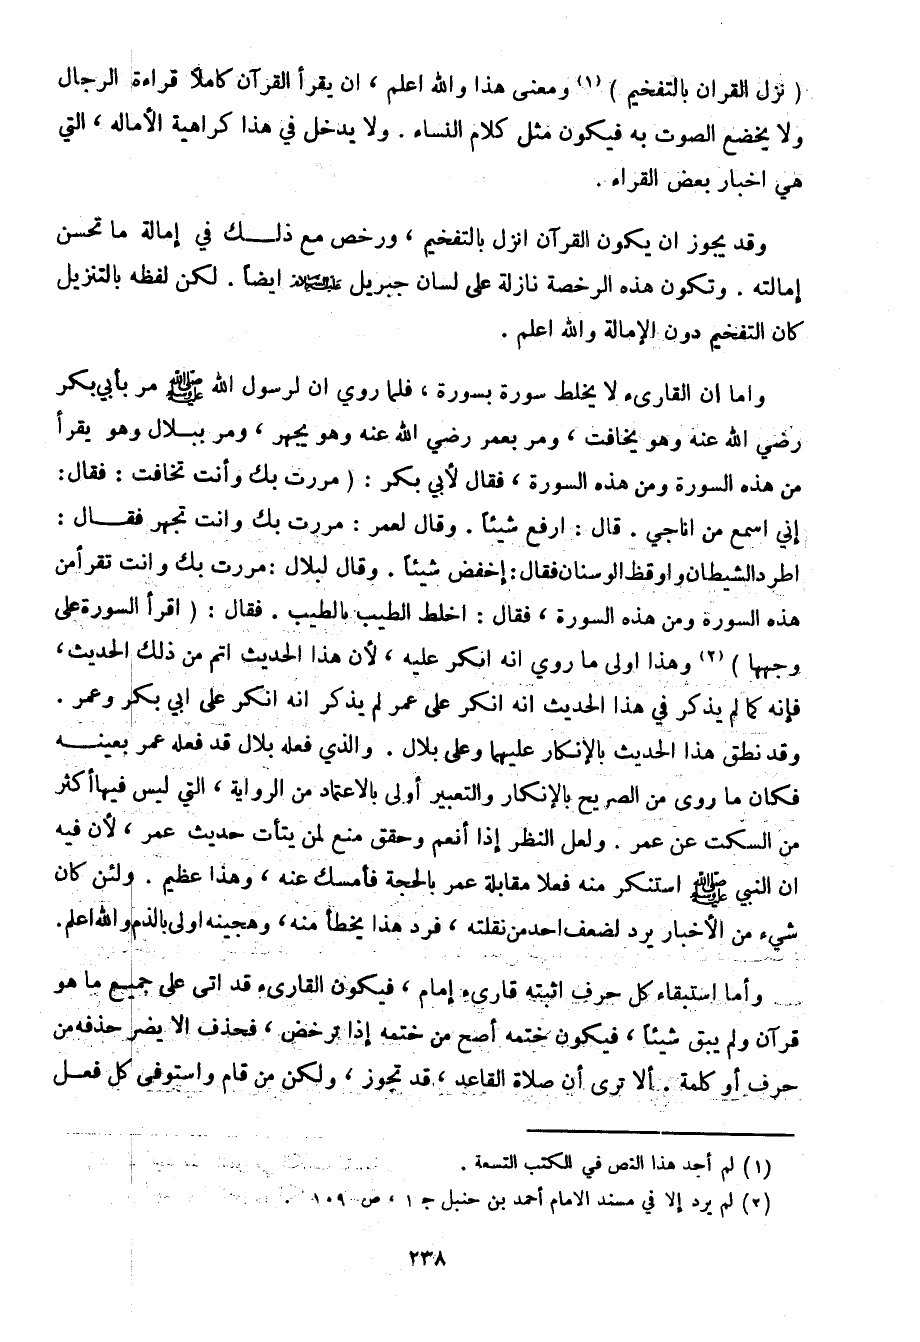 ( نزل القران بالتفخيم ) (١) ومعنى هذا والله اعلم ، ان يقرأ القرآن كاملاً قراءة الرجال
ولا يخضع الصوت به فيكون مثل كلام النساء . ولا يدخل في هذا كراهية الأماله ، التي
هي اخبار بعض القراء .
وقد يجوز ان يكون القرآن انزل بالتفخيم ، ورخص مع ذلك في إمالة ما تحسن
إمالته . وتكون هذه الرخصة نازلة على لسان جبريل عليه السلام ايضاً . لكن لفظه بالتنزيل
كان التفخيم دون الإمالة والله اعلم .
واما ان القارىء لا يخلط سورة بسورة ، فلما روي ان لرسول الله ﷺ مر بأبي بكر
رضي الله عنه وهو يخافت ، ومر بعمر رضي الله عنه وهو يجهر ، ومر ببلال وهو يقرأ
من هذه السورة ومن هذه السورة ، فقال لأبي بكر : ( مررت بك وأنت تخافت : فقال:
إني اسمع من اناجي . قال : ارفع شيئاً . وقال لعمر : مررت بك وانت تجهر فقال :
اطرد الشيطان واوقظ الوسنان فقال : إخفض شيئاً . وقال لبلال : مررت بك وانت تقرأ من
هذه السورة ومن هذه السورة ، فقال : اخلط الطيب بالطيب . فقال : ( اقرأ السورة على
وجهها ) (٢) وهذا اولى ما روي انه انكر عليه ، لأن هذا الحديث اتم من ذلك الحديث ،
فإنه كما لم يذكر في هذا الحديث انه انكر على عمر لم يذكر انه انكر على ابي بكر وعمر .
وقد نطق هذا الحديث بالإنكار عليهما وعلى بلال . والذي فعله بلال قد فعله عمر بعينه
فكان ما روى من الصريح بالإنكار والتعبير أولى بالاعتماد من الرواية ، التي ليس فيها أكثر
من السكت عن عمر . ولعل النظر إذا أنعم وحقق منع لمن يتأت حديث عمر ، لأن فيه
ان النبي ﷺ استنكر منه فعلا مقابلة عمر بالحجة فأمسك عنه ، وهذا عظيم . ولئن كان
شيء من الأخبار يرد لضعف احد من نقلته ، فرد هذا يخطأ منه ، وهجينه اولى بالذم والله اعلم .
وأما استبقاء كل حرف اثبته قارىء إمام ، فيكون القارىء قد اتى على جميع ما هو
قرآن ولم يبق شيئاً ، فيكون ختمه أصح من ختمه إذا ترخص ، فحذف الا يضر حذفه من
حرف أو كلمة . ألا ترى أن صلاة القاعد ، قد تجوز ، ولكن من قام واستوفى كل فعل
(١) لم أجد هذا النص في الكتب التسعة .
(٢) لم يرد إلا في مسند الامام أحمد بن حنبل جـ ١ ، ص ١٠٩ .
٢٣٨